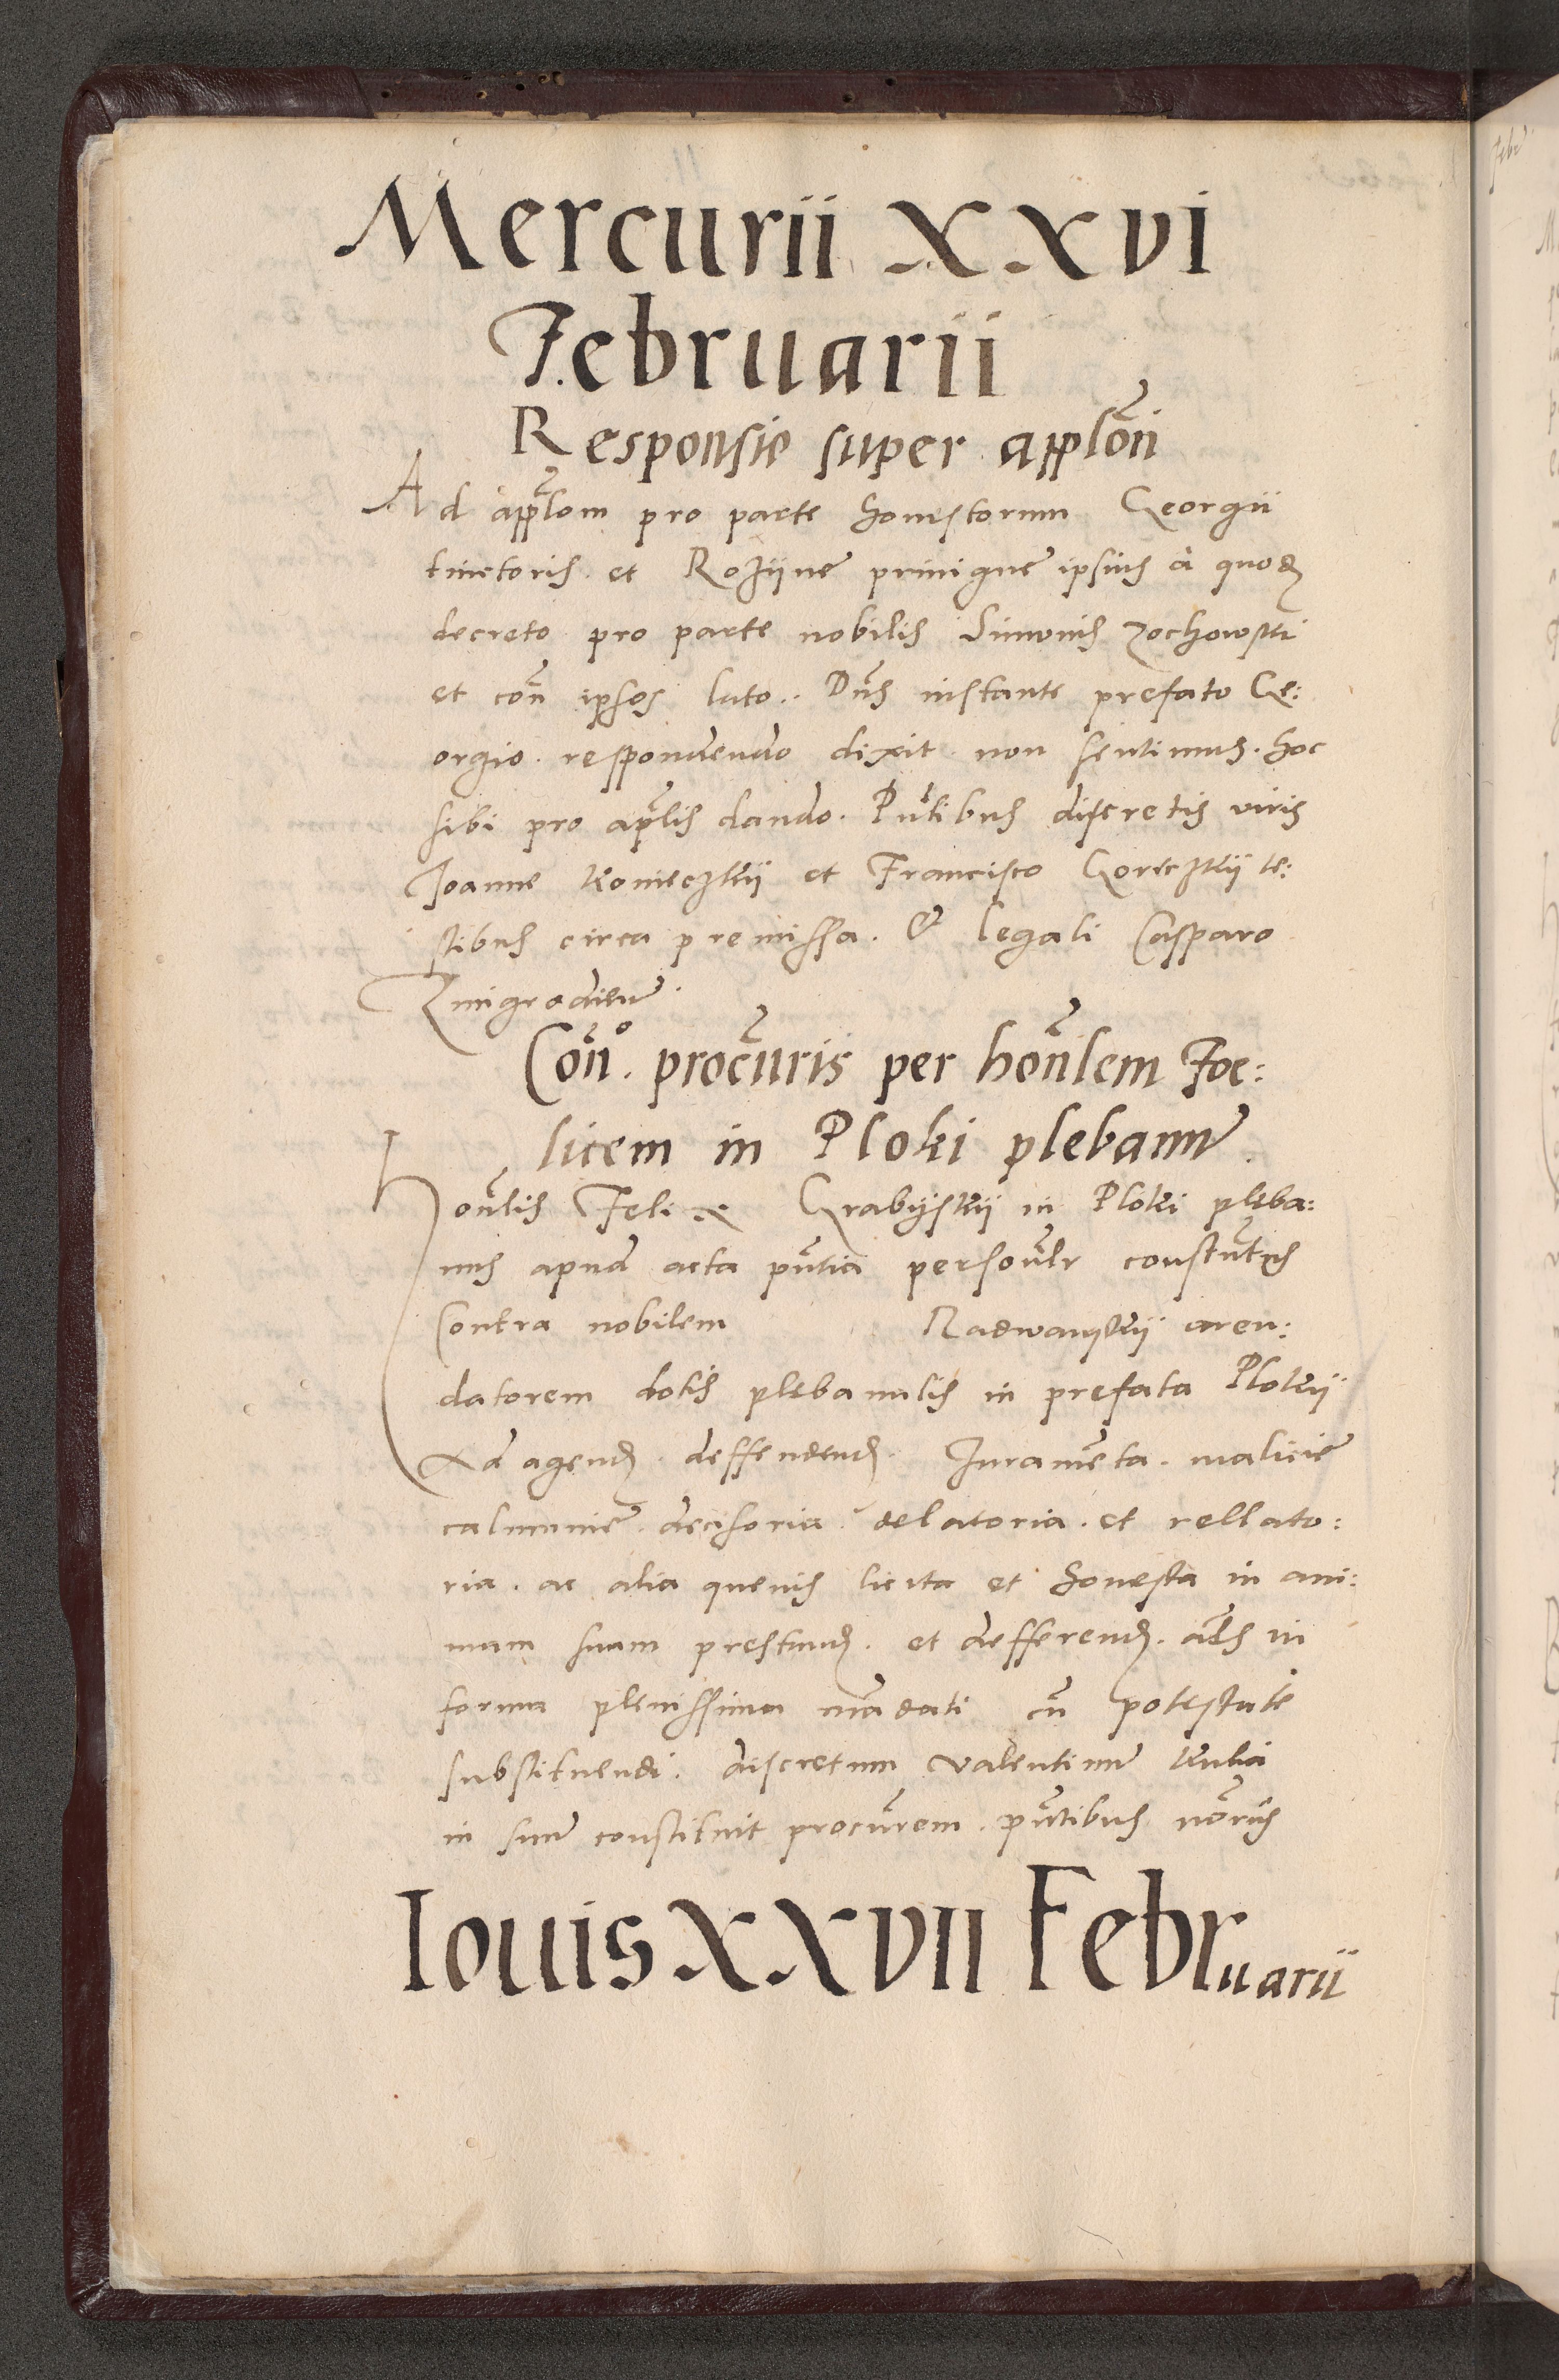 Mercurii XXVI
Februarii
Responsio super applõni
Ad app̃lom pro parte honestorum Georgii
tinctoris et Rozijne privigne ipsius a quod
decreto pro parte nobilis Simonis Zochowski
et coñ ipsos lato. Dñs instante prefato Ge:
orgio respondendo dixit non sentimus. hoc
sibi pro ap̃lis dando. Pñtibus discretis viris
Joanne Konieczkij et Francisco Goreczkij te:
stibus circa premissa. & legali Casparo
Zmigrodcium.
Coñº. procũris per hoñlem Foe:
licem in Ploki plebanũ.
Hoñlis Felix Grabijskij in Ploki pleba:
nus apud acta pñtia persoñlr constñtus
Contra nobilem Radwanskij aren:
datorem dotis plebanalis in prefata Plokij
Ad agend. deffendend. Juramẽta. malicie
calumnie. decisoria delatoria. et rellato:
ria. ac alia quevis licita et honesta in ani:
mam suam prestand. et defferend. in
forma plenissima mãdati cũ potestate
substituendi. discretum Valentinũ
in suũ constituit procũrem. pñtibus nõriis
Iouis XXVII Februarii